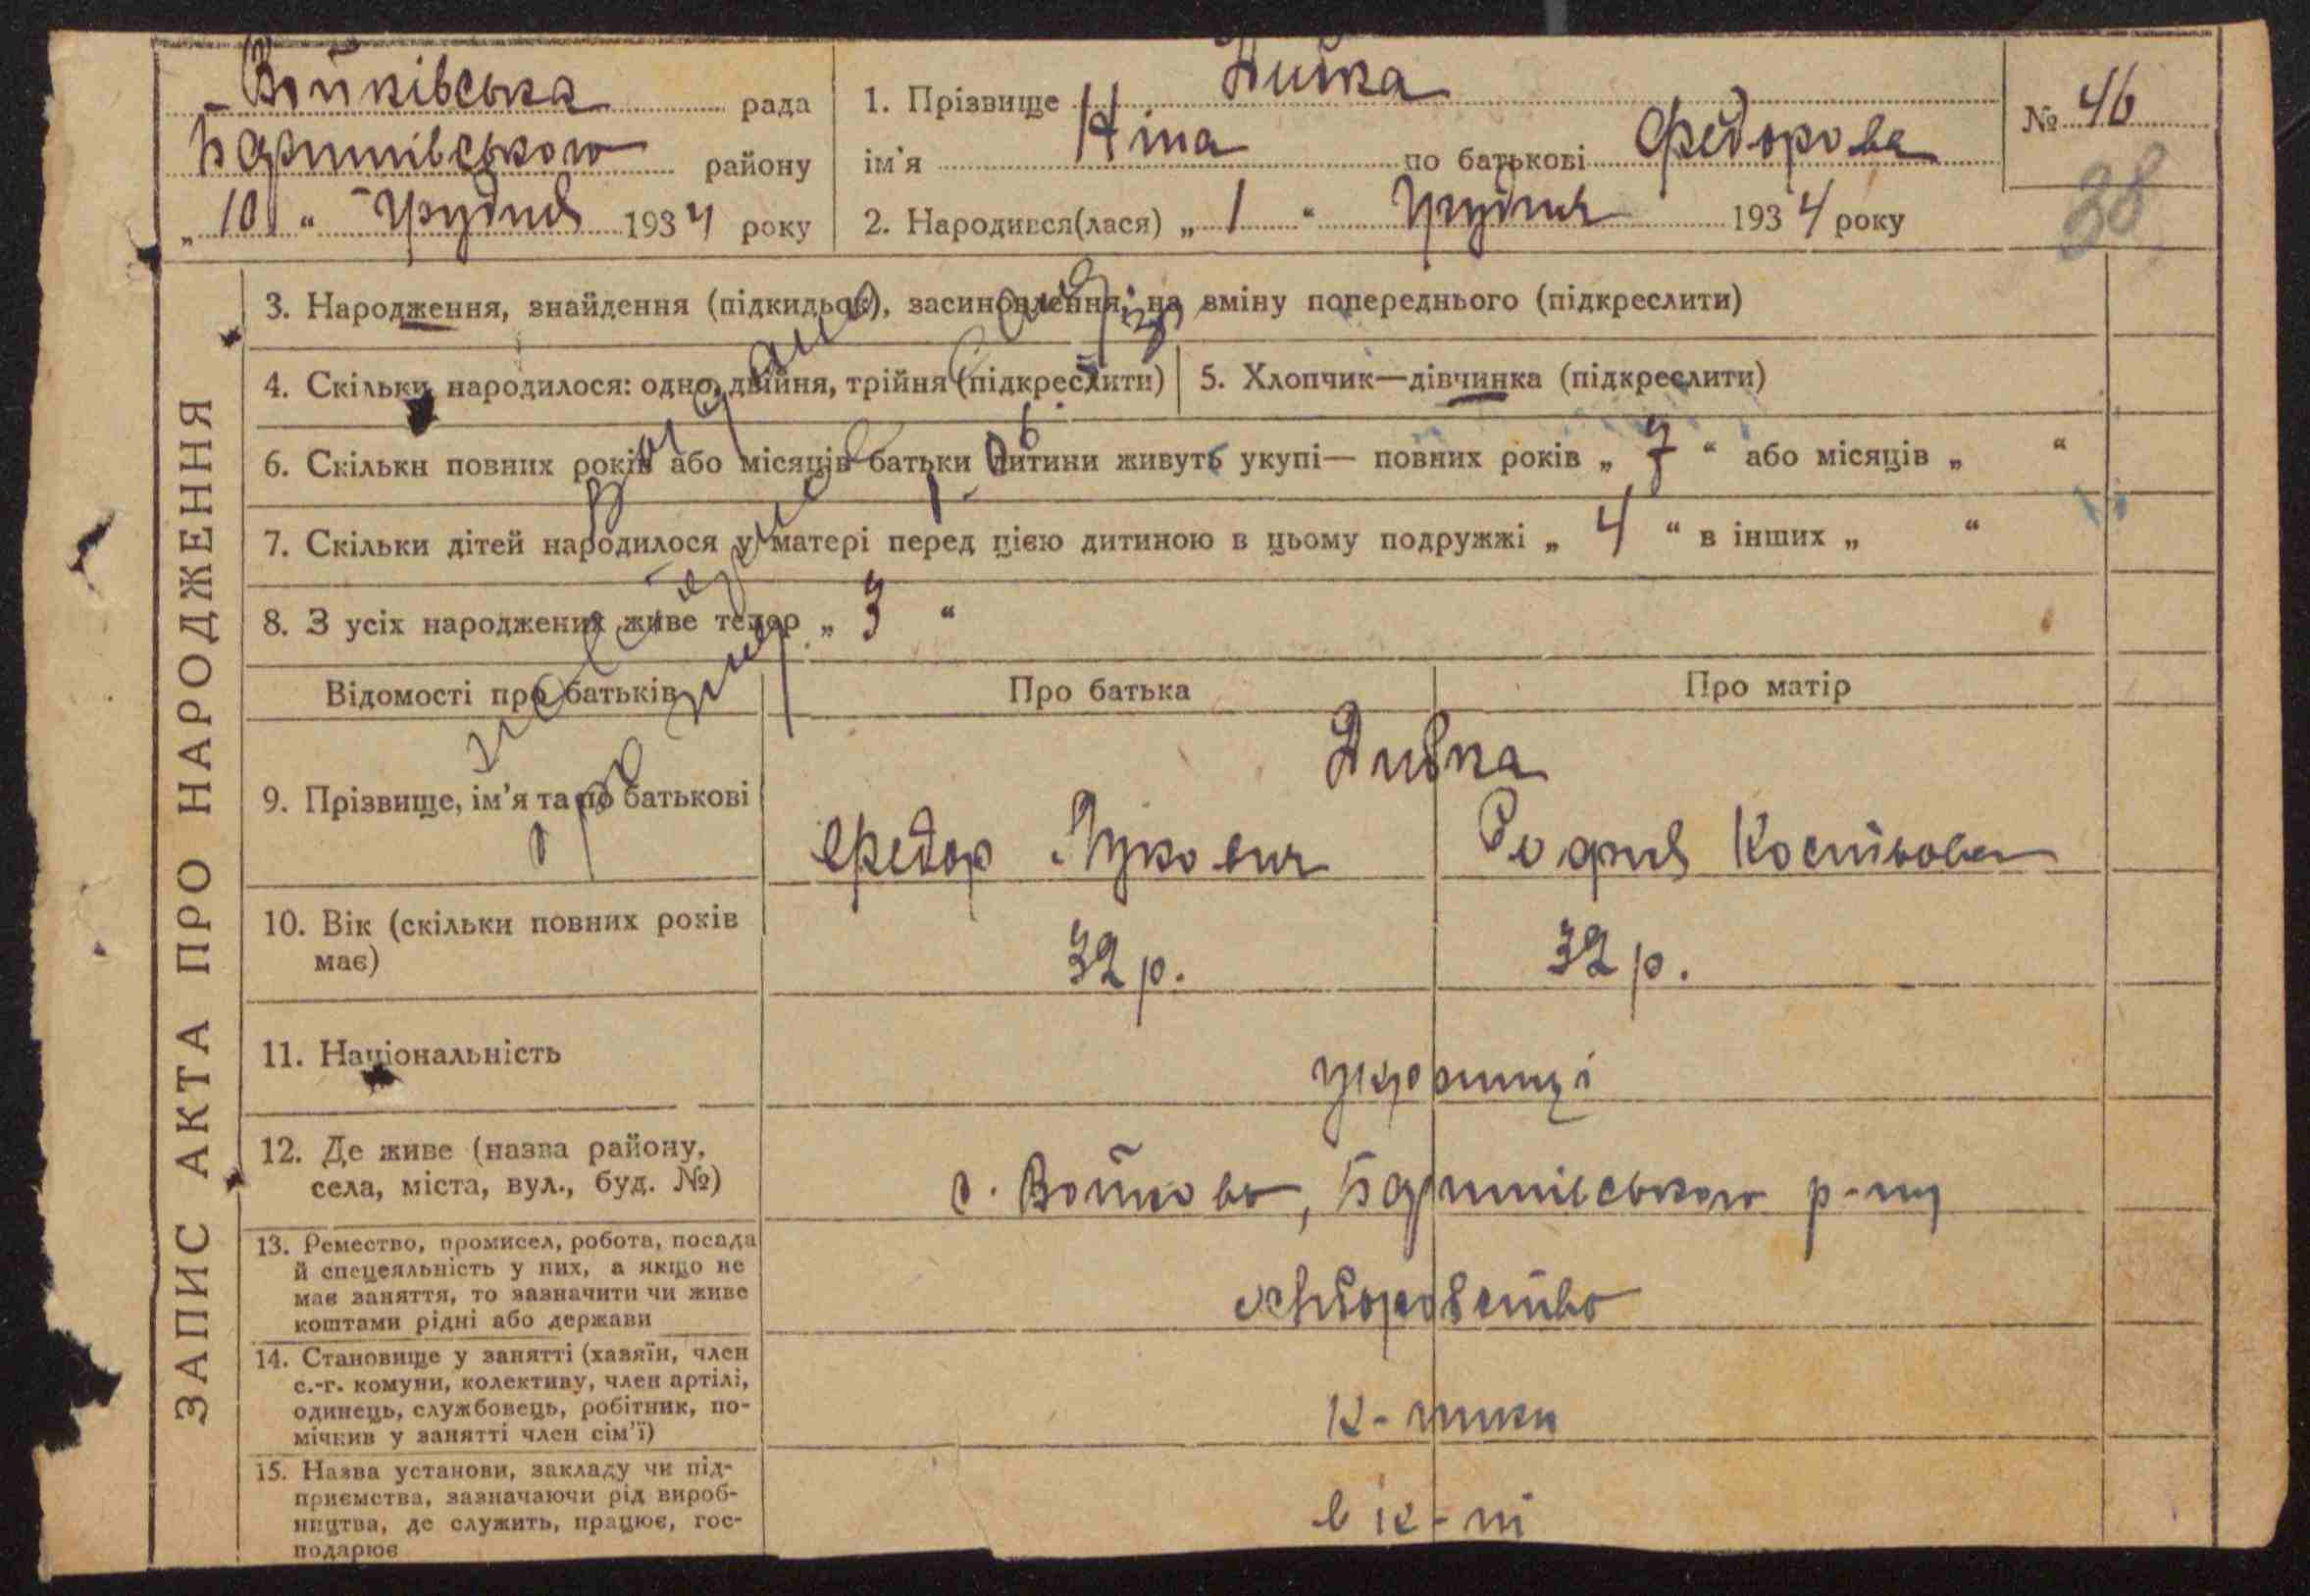 Войківська рада
Баришівського району
„10“ Грудня 1934 року
1. Прізвище Дивка
ім'я Ніна по батькові Федорова
2. Народився(лася) „1“ Грудня 1934 року
№ 46
38
ЗАПИС АКТА ПРО НАРОДЖЕННЯ
3. Народження, знайдення (підкидьок), засиновлення, на вміну попереднього (підкреслити)
4. Скільки народилося: одно, двійня, трійня (підкреслити)
5. Хлопчик—дівчинка (підкреслити)
6. Скільки повних років або місяців батьки дитини живуть укупі— повних років „7“ або місяців „ “
7. Скільки дітей народилося у матері перед цією дитиною в цьому подружжі „4“ в інших „ “
8. З усіх народжених живе тепер „3“
Відомості про батьків
Про батька
Про матір
9. Прізвище, ім'я та по батькові
Дивка
Федор Лукович
София Костівова
10. Вік (скільки повних років має)
32 р.
32 р.
11. Національність
українці
12. Де живе (назва району,
села, міста, вул., буд. №)
с. Войково, Баришівського р-ну
13. Ремество, промисел, робота, посада
й спецеяльність у них, а якщо не
має заняття, то зазначити чи живе
коштами рідні або держави
хліборобство
14. Становище у занятті (хазяїн, член
с.-г. комуни, колективу, член артілі,
одинець, службовець, робітник, по-
мічкив у занятті член сім'ї)
к-ники
15. Назва установи, закладу чи під-
приємства, зазначаючи рід вироб-
ництва, де служить, працює, гос-
подарює
в к-пі